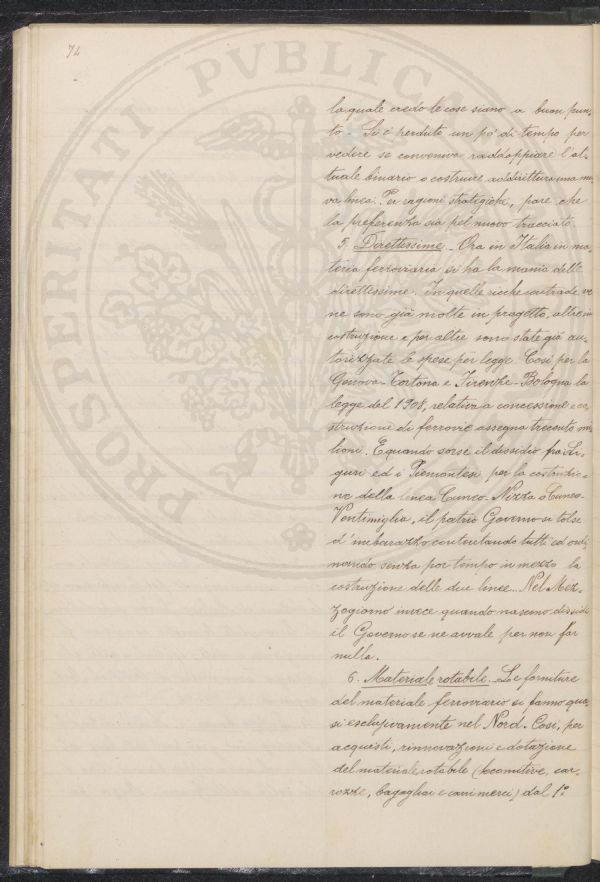 74
PVBLICAE
PERITATI
PROSPERITATI
la quale credo le cose siano a buon pun-
to. Si è perduto un pò di tempo per
vedere se conveniva raddoppiare l'at-
tuale binario o costruire addirittura una nuo-
va linea. Per ragioni strategiche, pare che
la preferenza sia pel nuovo tracciato.
5. Direttissime. - Ora in Italia in ma-
teria ferroviaria si ha la mania delle
direttissime. In quelle ricche contrade ve
ne sono già molte in progetto, altre in
costruzione e per altre sono state già au-
torizzate le spese per legge. Così per la
Genova-Tortona e Firenze-Bologna la
legge del 1908, relativa a concessione e co-
struzione di ferrovie assegna trecento mi-
lioni. E quando sorse il dissidio fra Li-
guri ed i Piemontesi per la costruzio-
ne della linea Cuneo-Nizza o Cuneo-
Ventimiglia, il patrio Governo si tolse
d'imbarazzo contentando tutti ed ordi-
nando senza por tempo in mezzo la
costruzione delle due linee... Nel Mez-
zogiorno invece quando nascono dissidi
il Governo se ne avvale per non far
nulla.
6. Materiale rotabile. - Le forniture
del materiale ferroviario si fanno qua-
si esclusivamente nel Nord. Così, per
acquisti, rinnovazioni e dotazione
del materiale rotabile (locomotive, car-
rozze, bagagliai e carri merci) dal 1°